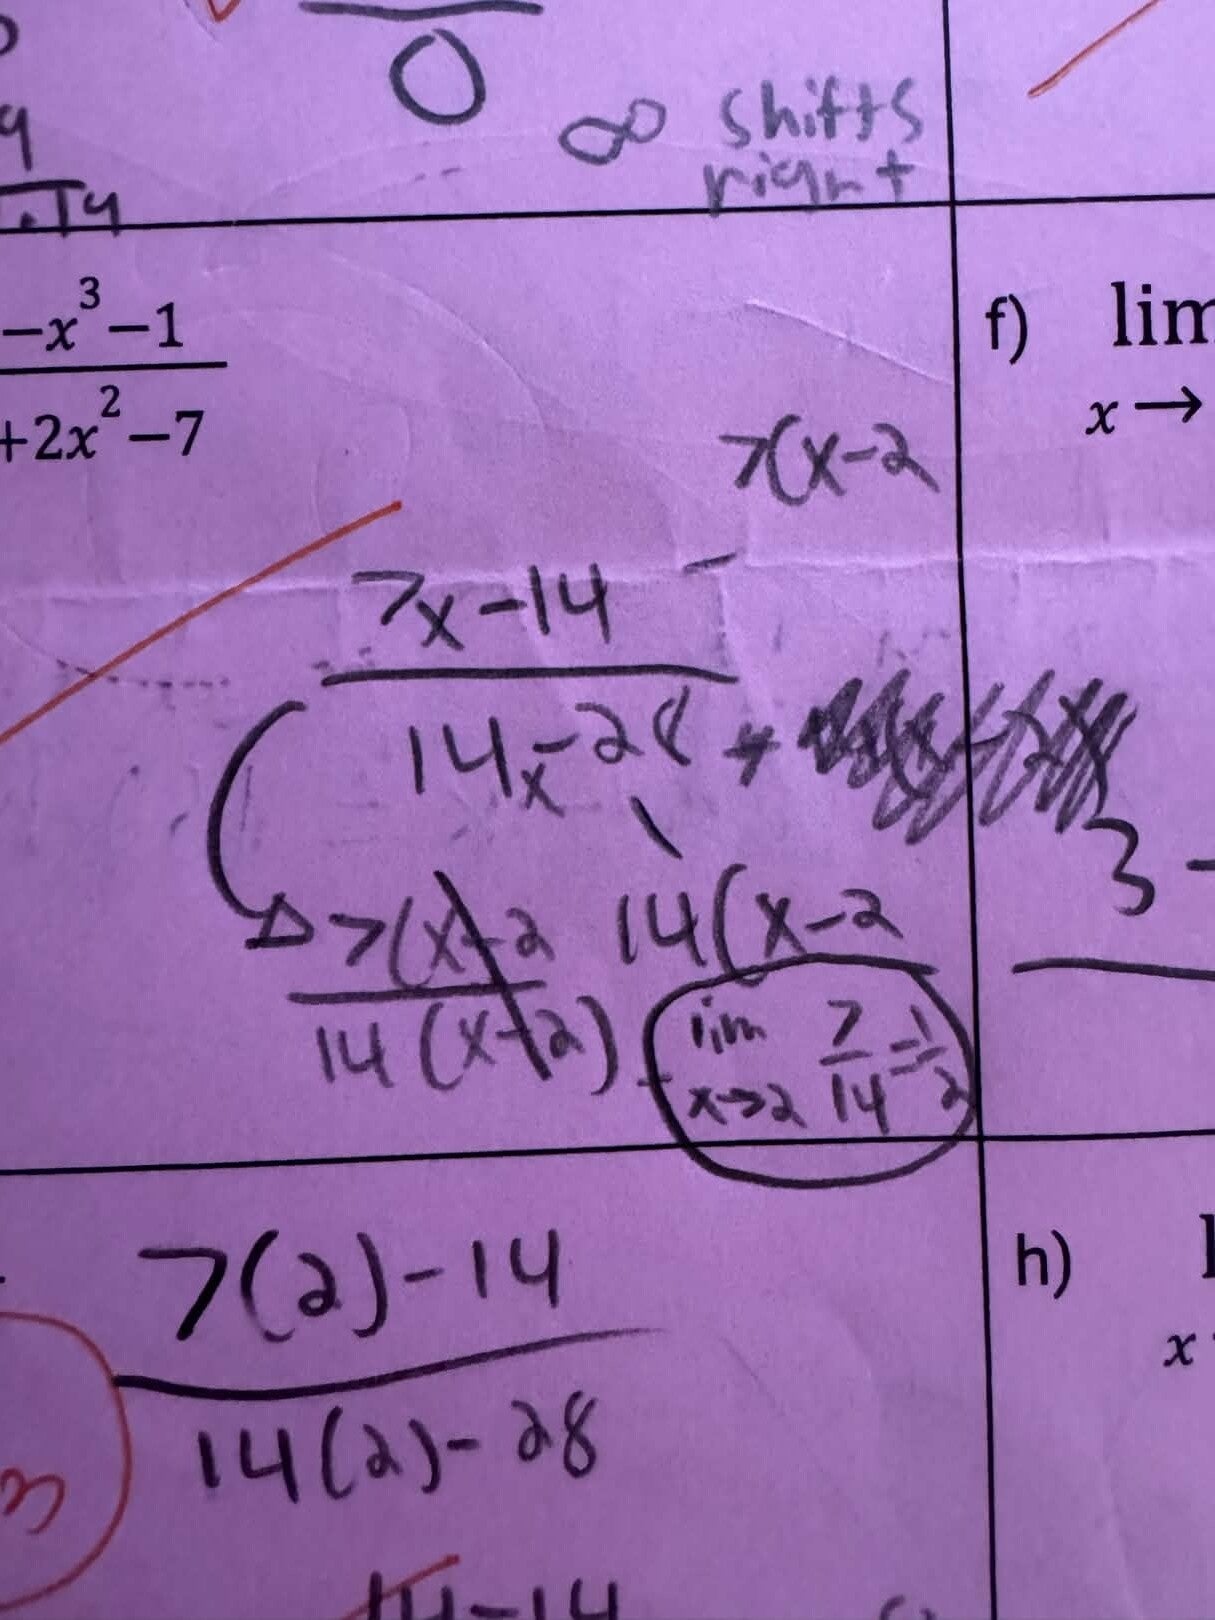 0
∞ shifts
right
−x³−1
+2x²−7
f) lim
x→
7(x−2
7x−14
14x−28
3 −
7(x−2 14(x−2
14(x−2)
lim 7/14 = 1/2
x→2
7(2)−14
14(2)−28
h)
x
3
14−14